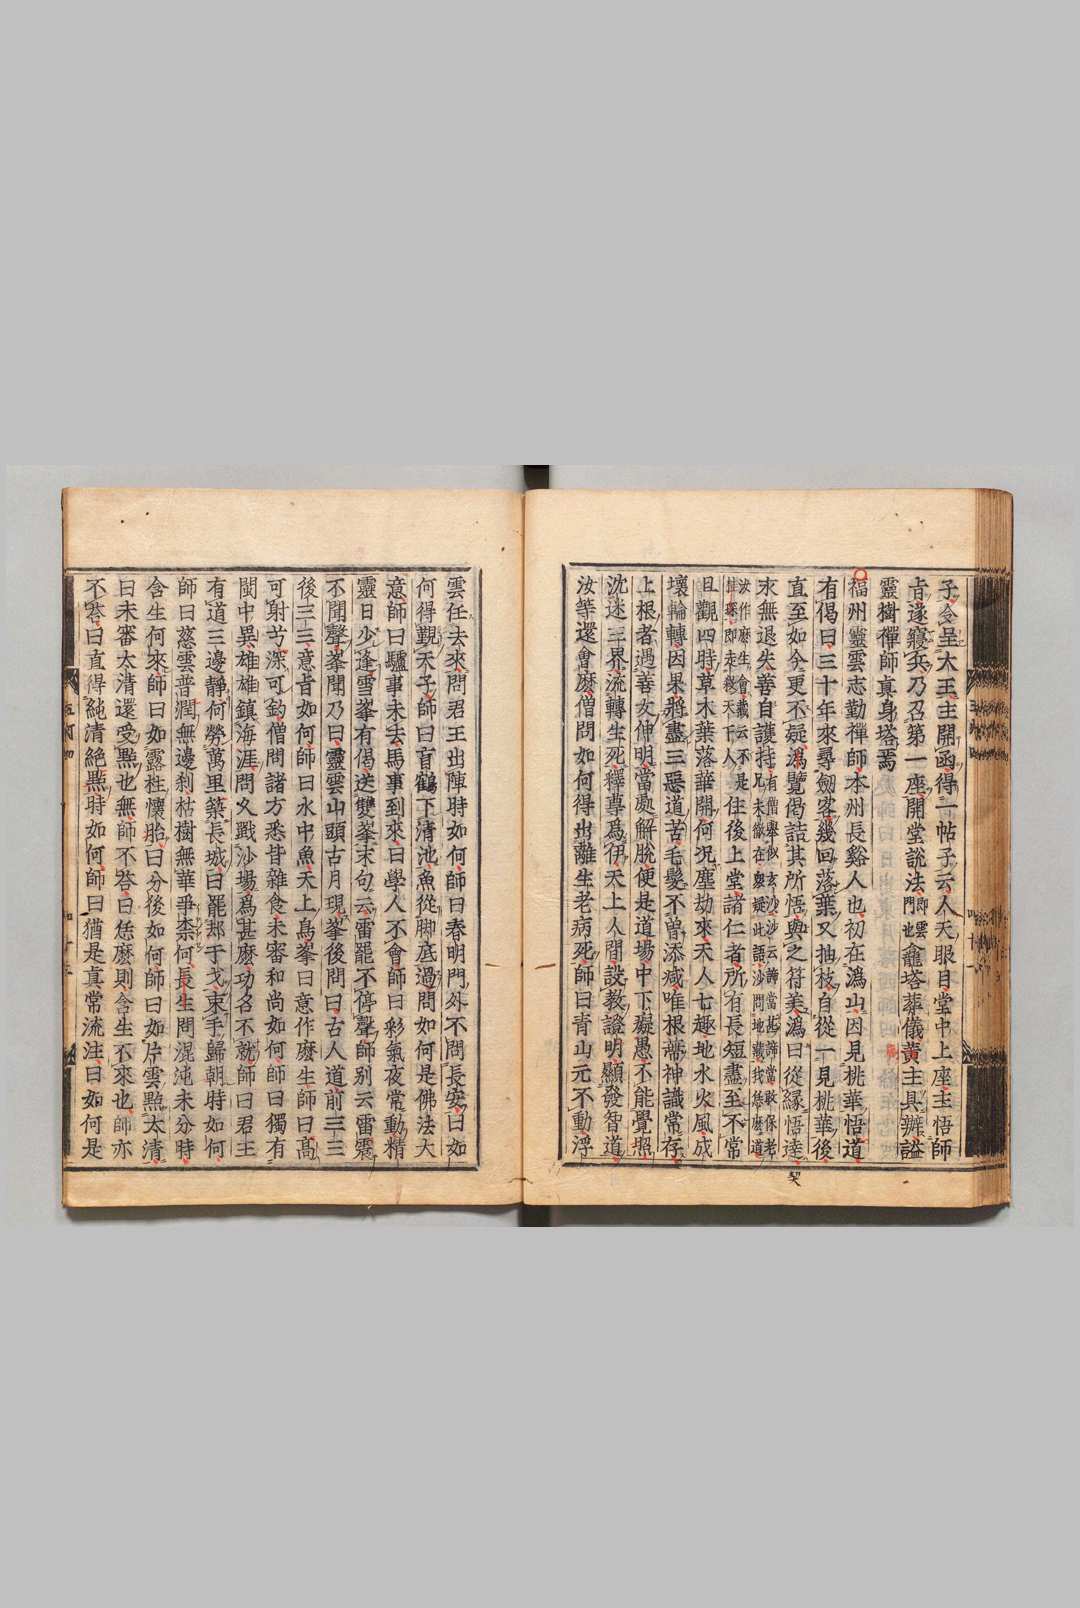 子令呈大王主開函得一帖子云人天眼目堂中上座主悟師
㫖遂寢兵乃召第一座開堂說法即雲門也龕塔葬儀黃主具辦謚
靈樹禪師真身塔焉
福州靈雲志勤禪師本州長谿人也初在溈山因見桃華悟道
有偈曰三十年來尋劒客幾回落葉又抽枝自從一見桃華後
直至如今更不疑溈覽偈詰其所悟與之符美溈曰從緣悟達
永無退失善自護持有僧舉似玄沙沙云諦當甚諦當敢保老兄未徹在衆疑此語沙問地藏我恁麽道
汝作麽生會藏云不是桂琛即走殺天下人住後上堂諸仁者所有長短盡至不常
且觀四時草木葉落華開何況塵劫來天人七趣地水火風成
壞輪轉因果將盡三惡道苦毛髮不曽添减唯根蔕神識常存
上根者遇善友伸明當處解脫便是道場中下癡愚不能覺照
沈迷三界流轉生死釋尊爲伊天上人間設教證明顯發智道
汝等還會麽僧問如何得出離生老病死師曰青山元不動浮
契
雲任去來問君王出陣時如何師曰春明門外不問長安曰如
何得覲天子師曰盲鶴下清池魚從脚底過問如何是佛法大
意師曰驢事未去馬事到來曰學人不會師曰彩氣夜常動精
靈日少逢雪峯有偈送雙峯末句云雷罷不停聲師別云雷震
不聞聲峯聞乃曰靈雲山頭古月現峯後問曰古人道前三三
後三三意㫖如何師曰水中魚天上鳥峯曰意作麽生師曰高
可射兮深可釣僧問諸方悉皆雜食未審和尚如何師曰獨有
閩中異雄雄鎮海涯問久戰沙場爲甚麽功名不就師曰君王
有道三邊靜何勞萬里築長城曰罷却干戈束手歸朝時如何
師曰慈雲普潤無邊刹枯樹無華爭柰何長生問混沌未分時
含生何來師曰如露柱懷胎曰分後如何師曰如片雲㸃太清
曰未審太清還受㸃也無師不答曰恁麽則含生不來也師亦
不答曰直得純清絶㸃時如何師曰猶是真常流注曰如何是